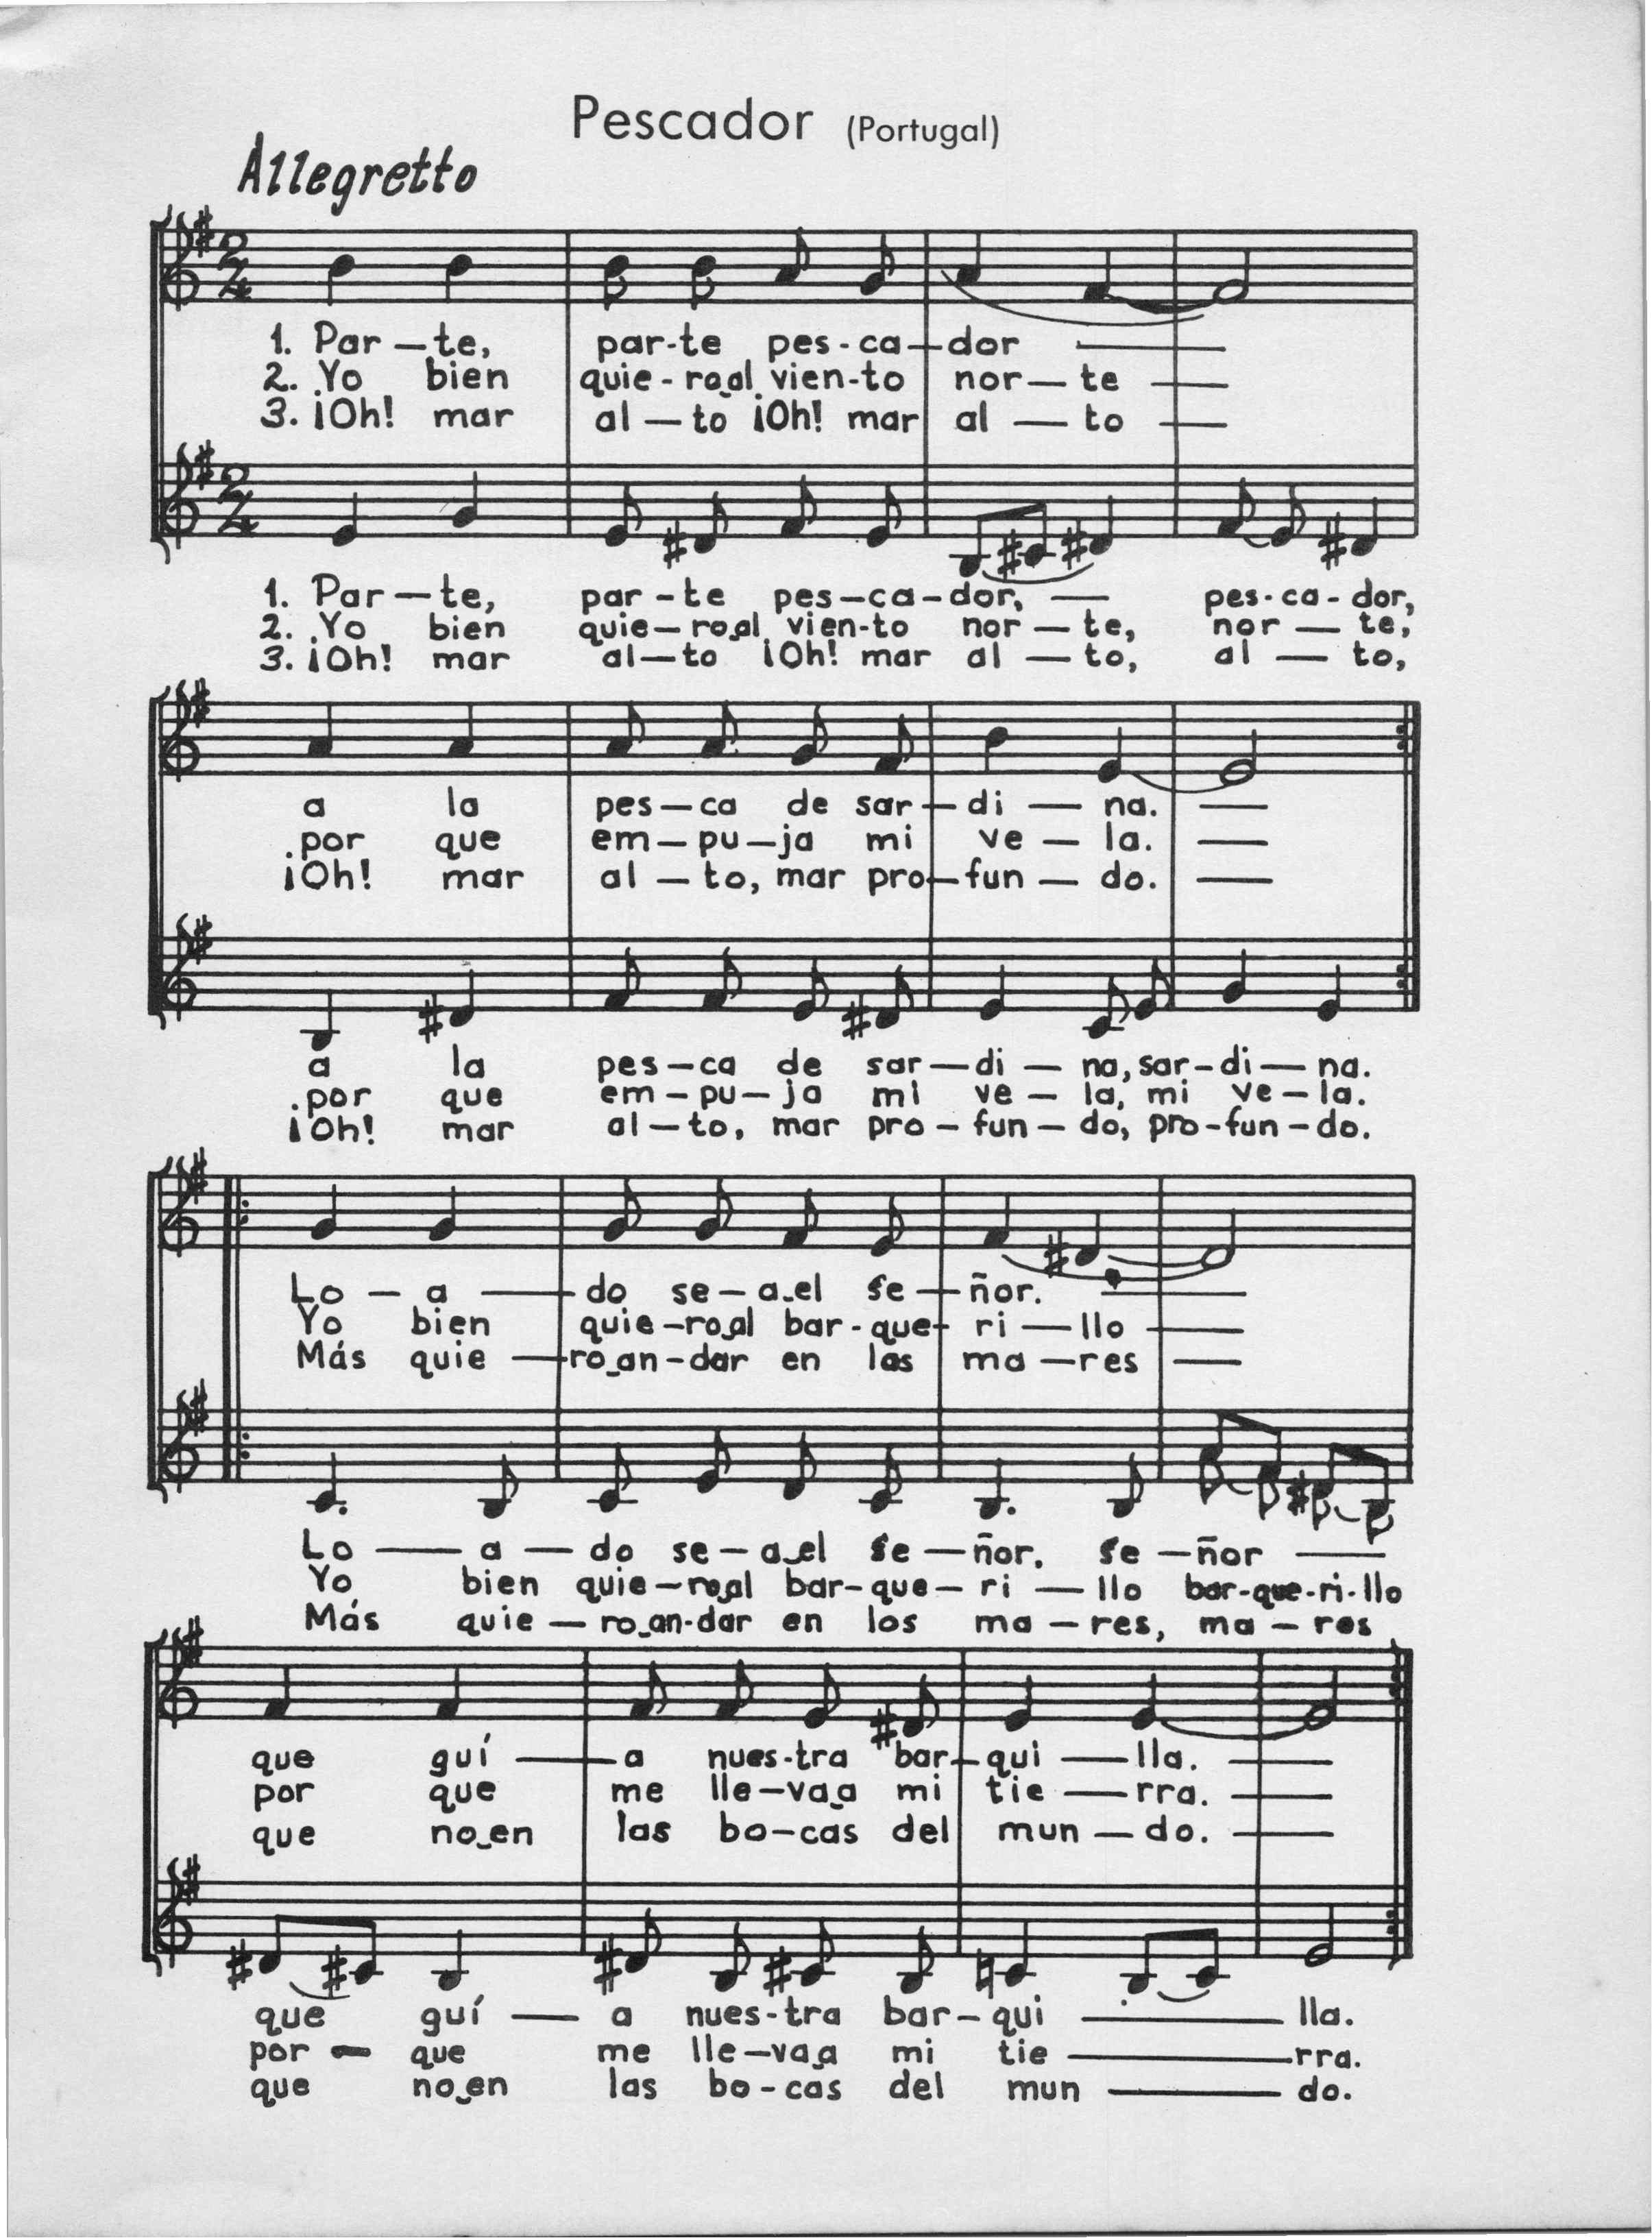 Pescador (Portugal)
Allegretto
1. Par—te, par-te pes-ca—dor —
2. Yo bien quie-ro‿al vien-to nor—te —
3. ¡Oh! mar al—to ¡Oh! mar al—to —
1. Par—te, par-te pes—ca-dor, — pes-ca-dor,
2. Yo bien quie—ro‿al vien-to nor—te, nor—te,
3. ¡Oh! mar al—to ¡Oh! mar al—to, al—to,
a la pes—ca de sar—di—na. —
por que em—pu—ja mi ve—la. —
¡Oh! mar al—to, mar pro—fun—do. —
a la pes—ca de sar—di—na, sar-di—na.
por que em—pu—ja mi ve—la, mi ve—la.
¡Oh! mar al—to, mar pro-fun—do, pro-fun-do.
Lo—a—do se—a‿el Se—ñor. —
Yo bien quie—ro‿al bar-que-ri—llo —
Más quie—ro‿an-dar en los ma—res —
Lo—a—do se—a‿el Se—ñor. Se—ñor —
Yo bien quie—ro‿al bar-que-ri—llo bar-que-ri-llo
Más quie—ro‿an-dar en los ma—res, ma—res
que guí—a nues-tra bar-qui—lla. —
por que me lle—va‿a mi tie—rra. —
que no‿en las bo—cas del mun—do. —
que guí—a nues-tra bar-qui—lla.
por - que me lle—va‿a mi tie—rra.
que no‿en las bo-cas del mun—do.